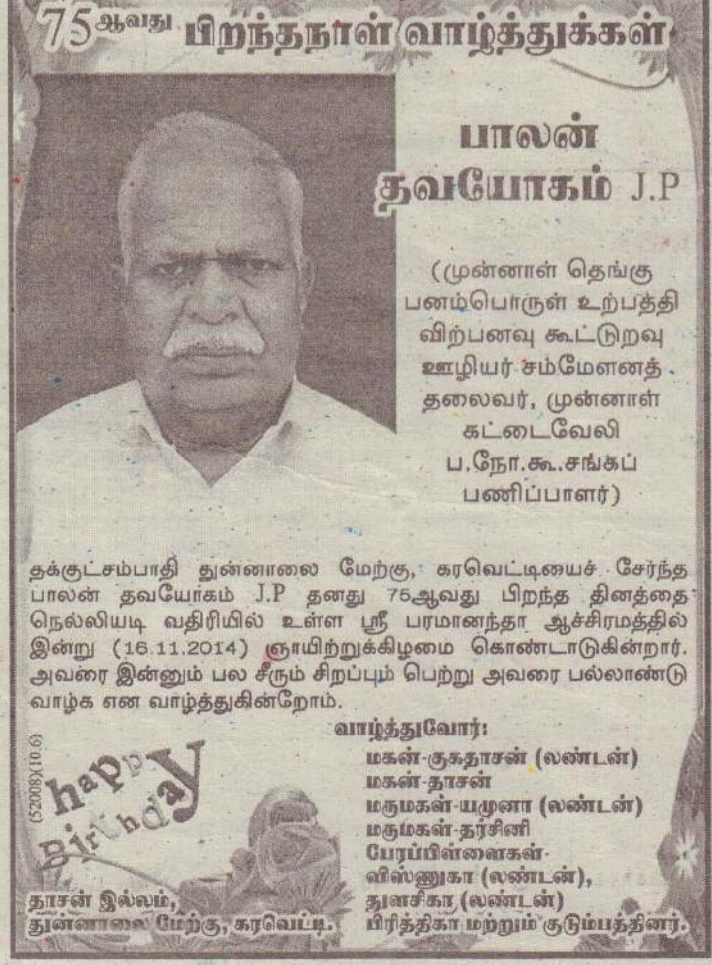 75ஆவது பிறந்தநாள் வாழ்த்துக்கள்
பாலன்
தவயோகம் J.P
(முன்னாள் தெங்கு
பனம்பொருள் உற்பத்தி
விற்பனவு கூட்டுறவு
ஊழியர் சம்மேளனத்
தலைவர், முன்னாள்
கட்டைவேலி
ப.நோ.கூ.சங்கப்
பணிப்பாளர்)
தக்குட்சம்பாதி துன்னாலை மேற்கு, கரவெட்டியைச் சேர்ந்த
பாலன் தவயோகம் J.P தனது 75ஆவது பிறந்த தினத்தை
நெல்லியடி வதிரியில் உள்ள ஸ்ரீ பரமானந்தா ஆச்சிரமத்தில்
இன்று (16.11.2014) ஞாயிற்றுக்கிழமை கொண்டாடுகின்றார்.
அவரை இன்னும் பல சீரும் சிறப்பும் பெற்று அவரை பல்லாண்டு
வாழ்க என வாழ்த்துகின்றோம்.
வாழ்த்துவோர்:
மகன்-குகதாசன் (லண்டன்)
மகன்-தாசன்
மருமகள்-யமுனா (லண்டன்)
மருமகள்-தர்சினி
பேரப்பிள்ளைகள்-
விஸ்ணுகா (லண்டன்),
துளசிகா (லண்டன்)
பிரித்திகா மற்றும் குடும்பத்தினர்.
(52008)(10.6)
happy
Birthday
தாசன் இல்லம்,
துன்னாலை மேற்கு, கரவெட்டி.